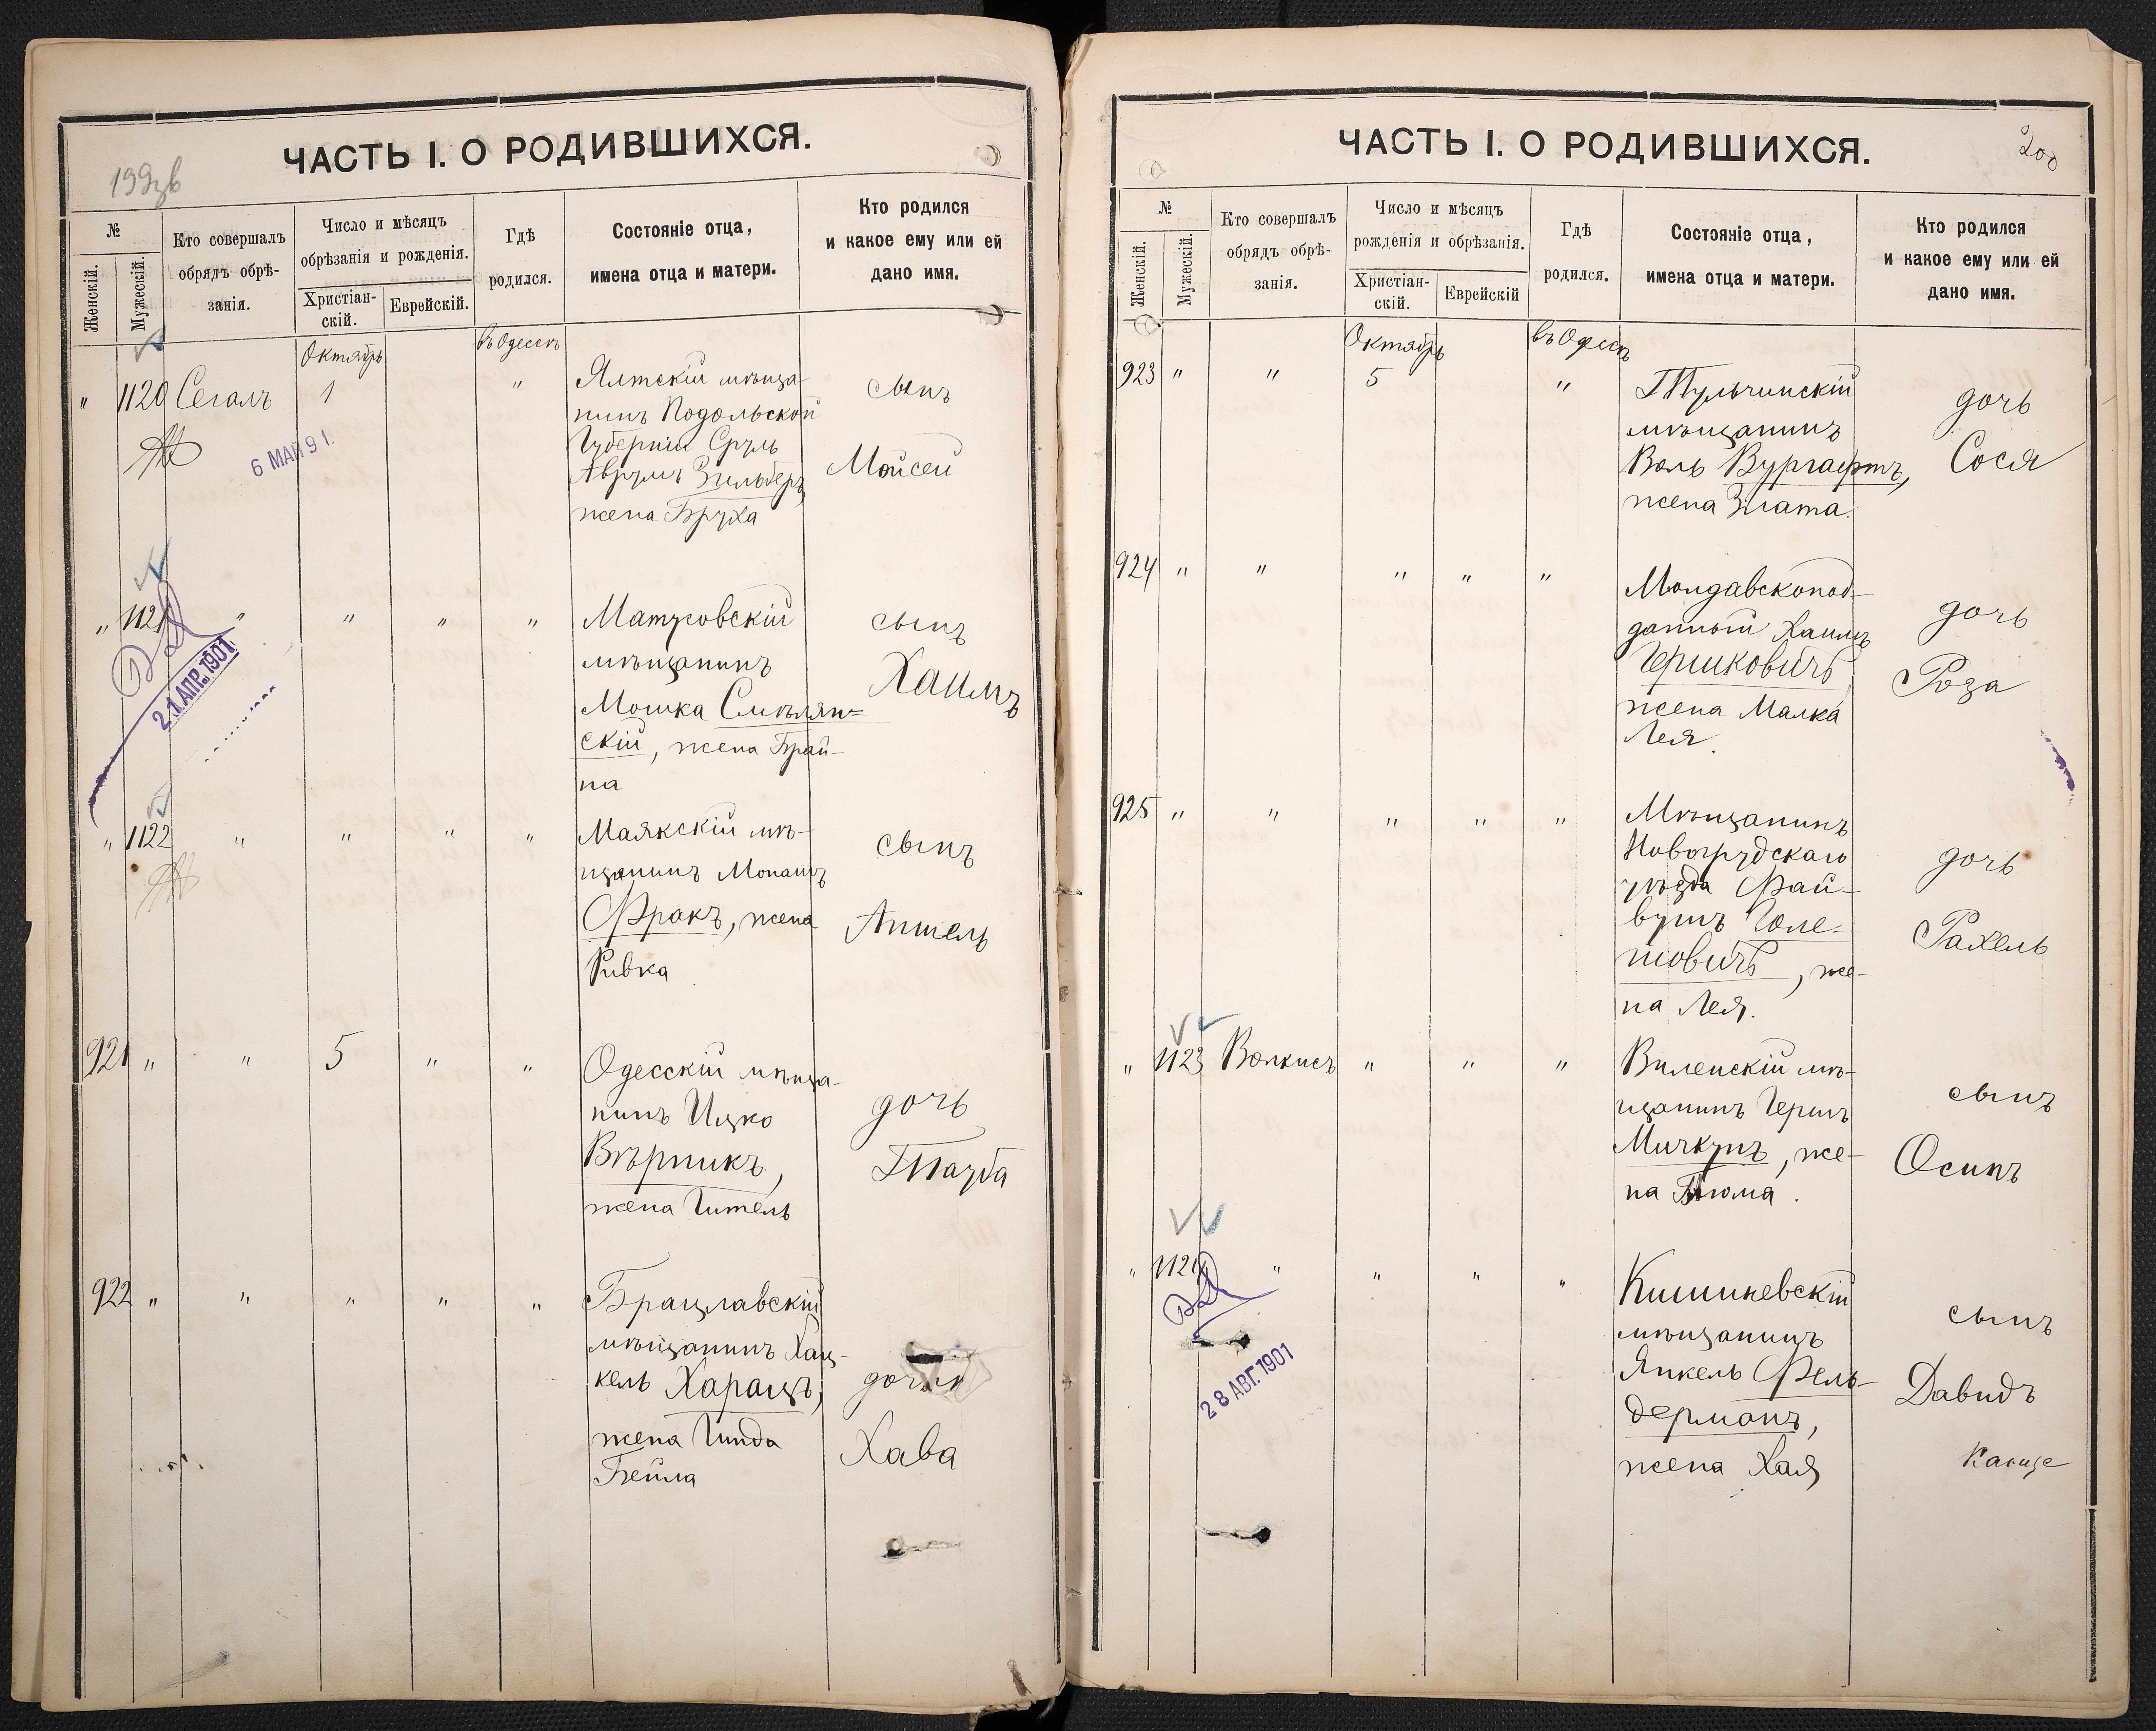 ЧАСТЬ I. О РОДИВШИХСЯ.
№
Женскій.
Мужескій.
Кто совершалъ
обрядъ обрѣ-
занія.
Число и мѣсяцъ
обрѣзанія и рожденія.
Христіан-
скій.
Еврейскій.
Гдѣ
родился.
Состояніе отца,
имена отца и матери.
Кто родился
и какое ему или ей
дано имя.
Октябрь
въ Одессѣ
" 1120 Сегалъ 1 "
Ялтскій мѣща-
нинъ Подольской
Губерніи Сруль
Аврумъ Зильберъ,
жена Бруха
сынъ
Мойсей
6 МАЙ 9 1.
" 1121 " " " "
Матусовскій
мѣщанинъ
Мошка Смѣлян=
скій, жена Брай-
на
сынъ
Хаимъ
21 АПР. 1901
" 1122 " " " "
Маякскій мѣ-
щанинъ Монашъ
Фракъ, жена
Ривка
сынъ
Аншель
921 " " 5 " "
Одесскій мѣща-
нинъ Ицко
Вѣрникъ,
жена Гитель
дочь
Тауба
922 " " " " "
Брацлавскій
мѣщанинъ Хац-
кель Харацъ,
жена Гинда
Бейла
дочь
Хава
ЧАСТЬ I. О РОДИВШИХСЯ.
200
№
Женскій.
Мужескій.
Кто совершалъ
обрядъ обрѣ-
занія.
Число и мѣсяцъ
рожденія и обрѣзанія.
Христіан-
скій.
Еврейскій
Гдѣ
родился.
Состояніе отца,
имена отца и матери.
Кто родился
и какое ему или ей
дано имя.
Октябрь
въ Одессѣ
923 " " 5 "
Тульчинскій
мѣщанинъ
Воль Вургафтъ,
жена Злата.
дочь
Сося
924 " " " " "
Молдавскопод-
данный Хаимъ
Гершковичъ,
жена Малка
Лея.
дочь
Роза
925 " " " " "
Мѣщанинъ
Новогрудскаго
уѣзда Фай-
вушъ Голе-
товичъ, же-
на Лея.
дочь
Рахель
" 1123 Волкисъ " " "
Виленскій мѣ-
щанинъ Гершъ
Мичкунъ, же-
на Блюма.
сынъ
Осипъ
" 1124 " " " "
Кишиневскій
мѣщанинъ
Янкель Фель-
дерманъ,
жена Хая
сынъ
Давидъ
28 АВГ. 1901